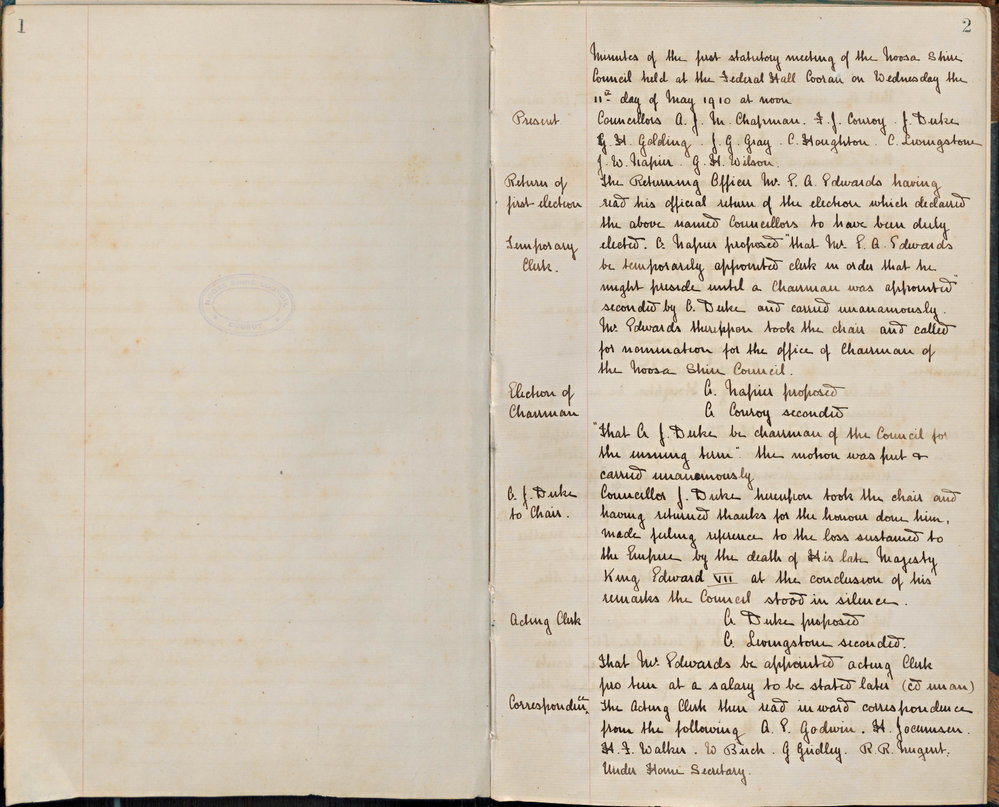 1
2
Minutes of the first statutory meeting of the Noosa Shire
Council held at the Federal Hall Cooran on Wednesday the
11th day of May 1910 at noon
Present Councillors A. J. M. Chapman. F. J. Conroy. J. Duke
G. H. Golding. J. G. Gray. C. Houghton. C. Livingstone
J. W. Napier. G. H. Wilson.
Return of The Returning Officer Mr. E. A. Edwards having
first election read his official return of the election which declared
the above named Councillors to have been duly
Temporary elected. Cr. Napier proposed "that Mr. E. A. Edwards
Clerk. be temporarily appointed clerk in order that he
might preside until a Chairman was appointed"
seconded by Cr. Duke and carried unanamously.
Mr. Edwards thereupon took the chair and called
for nomination for the office of Chairman of
the Noosa Shire Council.
Election of Cr. Napier proposed
Chairman Cr Conroy seconded
"That Cr J. Duke be chairman of the Council for
the ensuing term". the motion was put &
carried unanamously
Cr. J. Duke Councillor J. Duke hereupon took the chair and
to Chair. having returned thanks for the honour done him,
made feeling reference to the loss sustained to
the Empire by the death of His late Majesty
King Edward VII at the conclusion of his
remarks the Council stood in silence.
Acting Clerk Cr. Duke proposed
Cr. Livingstone seconded.
That Mr. Edwards be appointed acting Clerk
pro tem at a salary to be stated later (cd unan)
Correspondence The Acting Clerk then read inward correspondence
from the following A. E. Godwin. H. Jocumsen.
H. F. Walker. W Birch. G Gridley. R. R. Nugent.
Under Home Secretary.